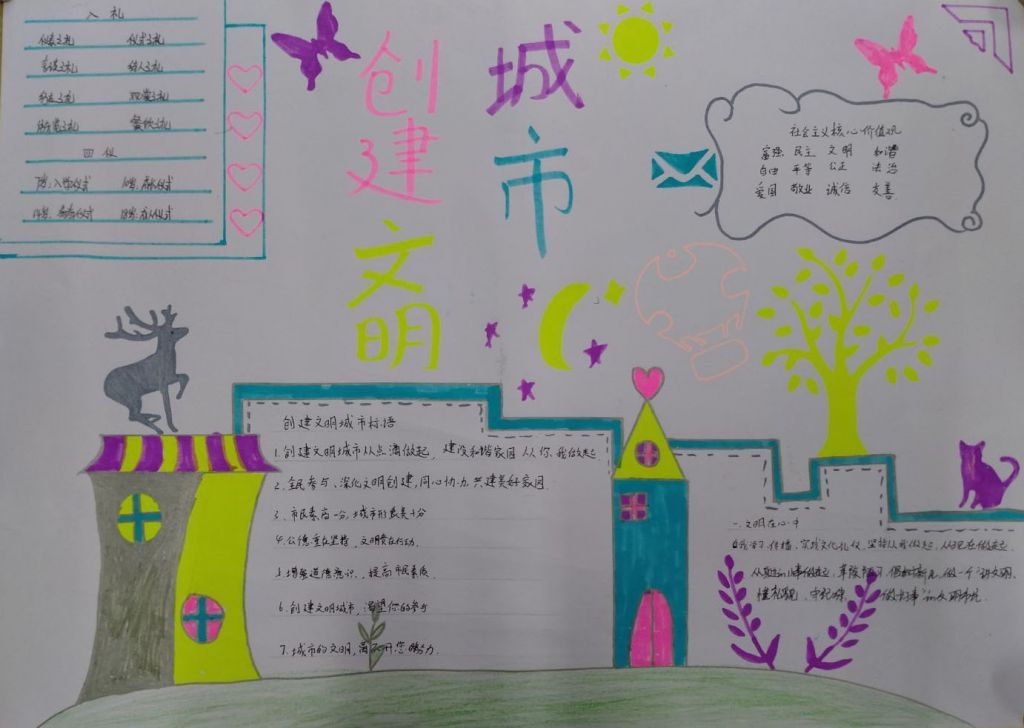 八礼
仪表之礼 仪式之礼
言谈之礼 待人之礼
行走之礼 观赏之礼
游览之礼 餐饮之礼
四仪
7岁:入学仪式
14岁:青春仪式 18岁:成人仪式
创建
文明
城市
社会主义核心价值观
富强 民主 文明 和谐
自由 平等 公正 法治
爱国 敬业 诚信 友善
创建文明城市标语
1.创建文明城市从点滴做起,建设和谐家园从你我做起
2.全民参与、深化文明创建,同心协力共建美好家园.
3.市民素高一分,城市形象美十分
4.公德重在坚持,文明贵在行动.
5.增强道德意识,提高市民素质.
6.创建文明城市,渴望你的参与
7.城市的文明,离不开您的努力.
一.文明在心中
学习、传播、实践文化礼仪,坚持从我做起,从现在做起.